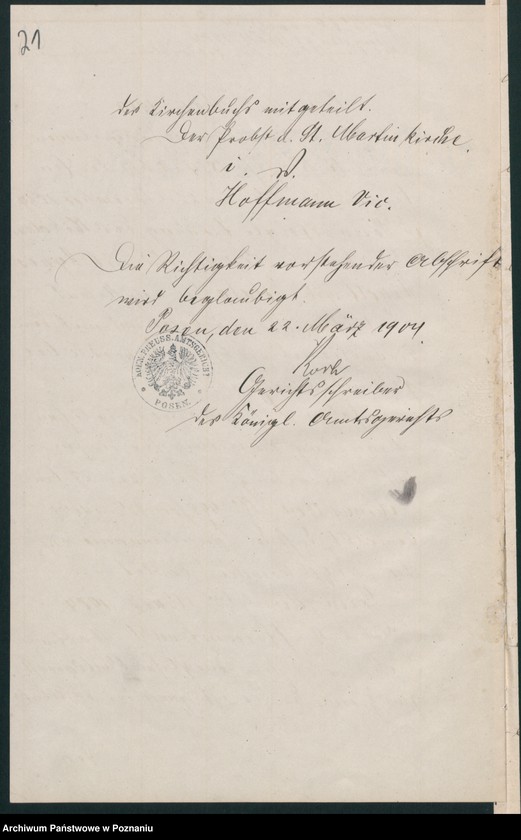 21
des Kirchenbuchs mitgeteilt.
Der Probst d. St. Martin Kirche.
i. V.
Hoffmann Vic.
Die Richtigkeit vorstehender Abschrift
wird beglaubigt.
Posen, den 22. März 1904.
Gerichtsschreiber
des Königl. Amtsgerichts
KOEN. PREUSS. AMTSGERICHT
* POSEN. *
Archiwum Państwowe w Poznaniu